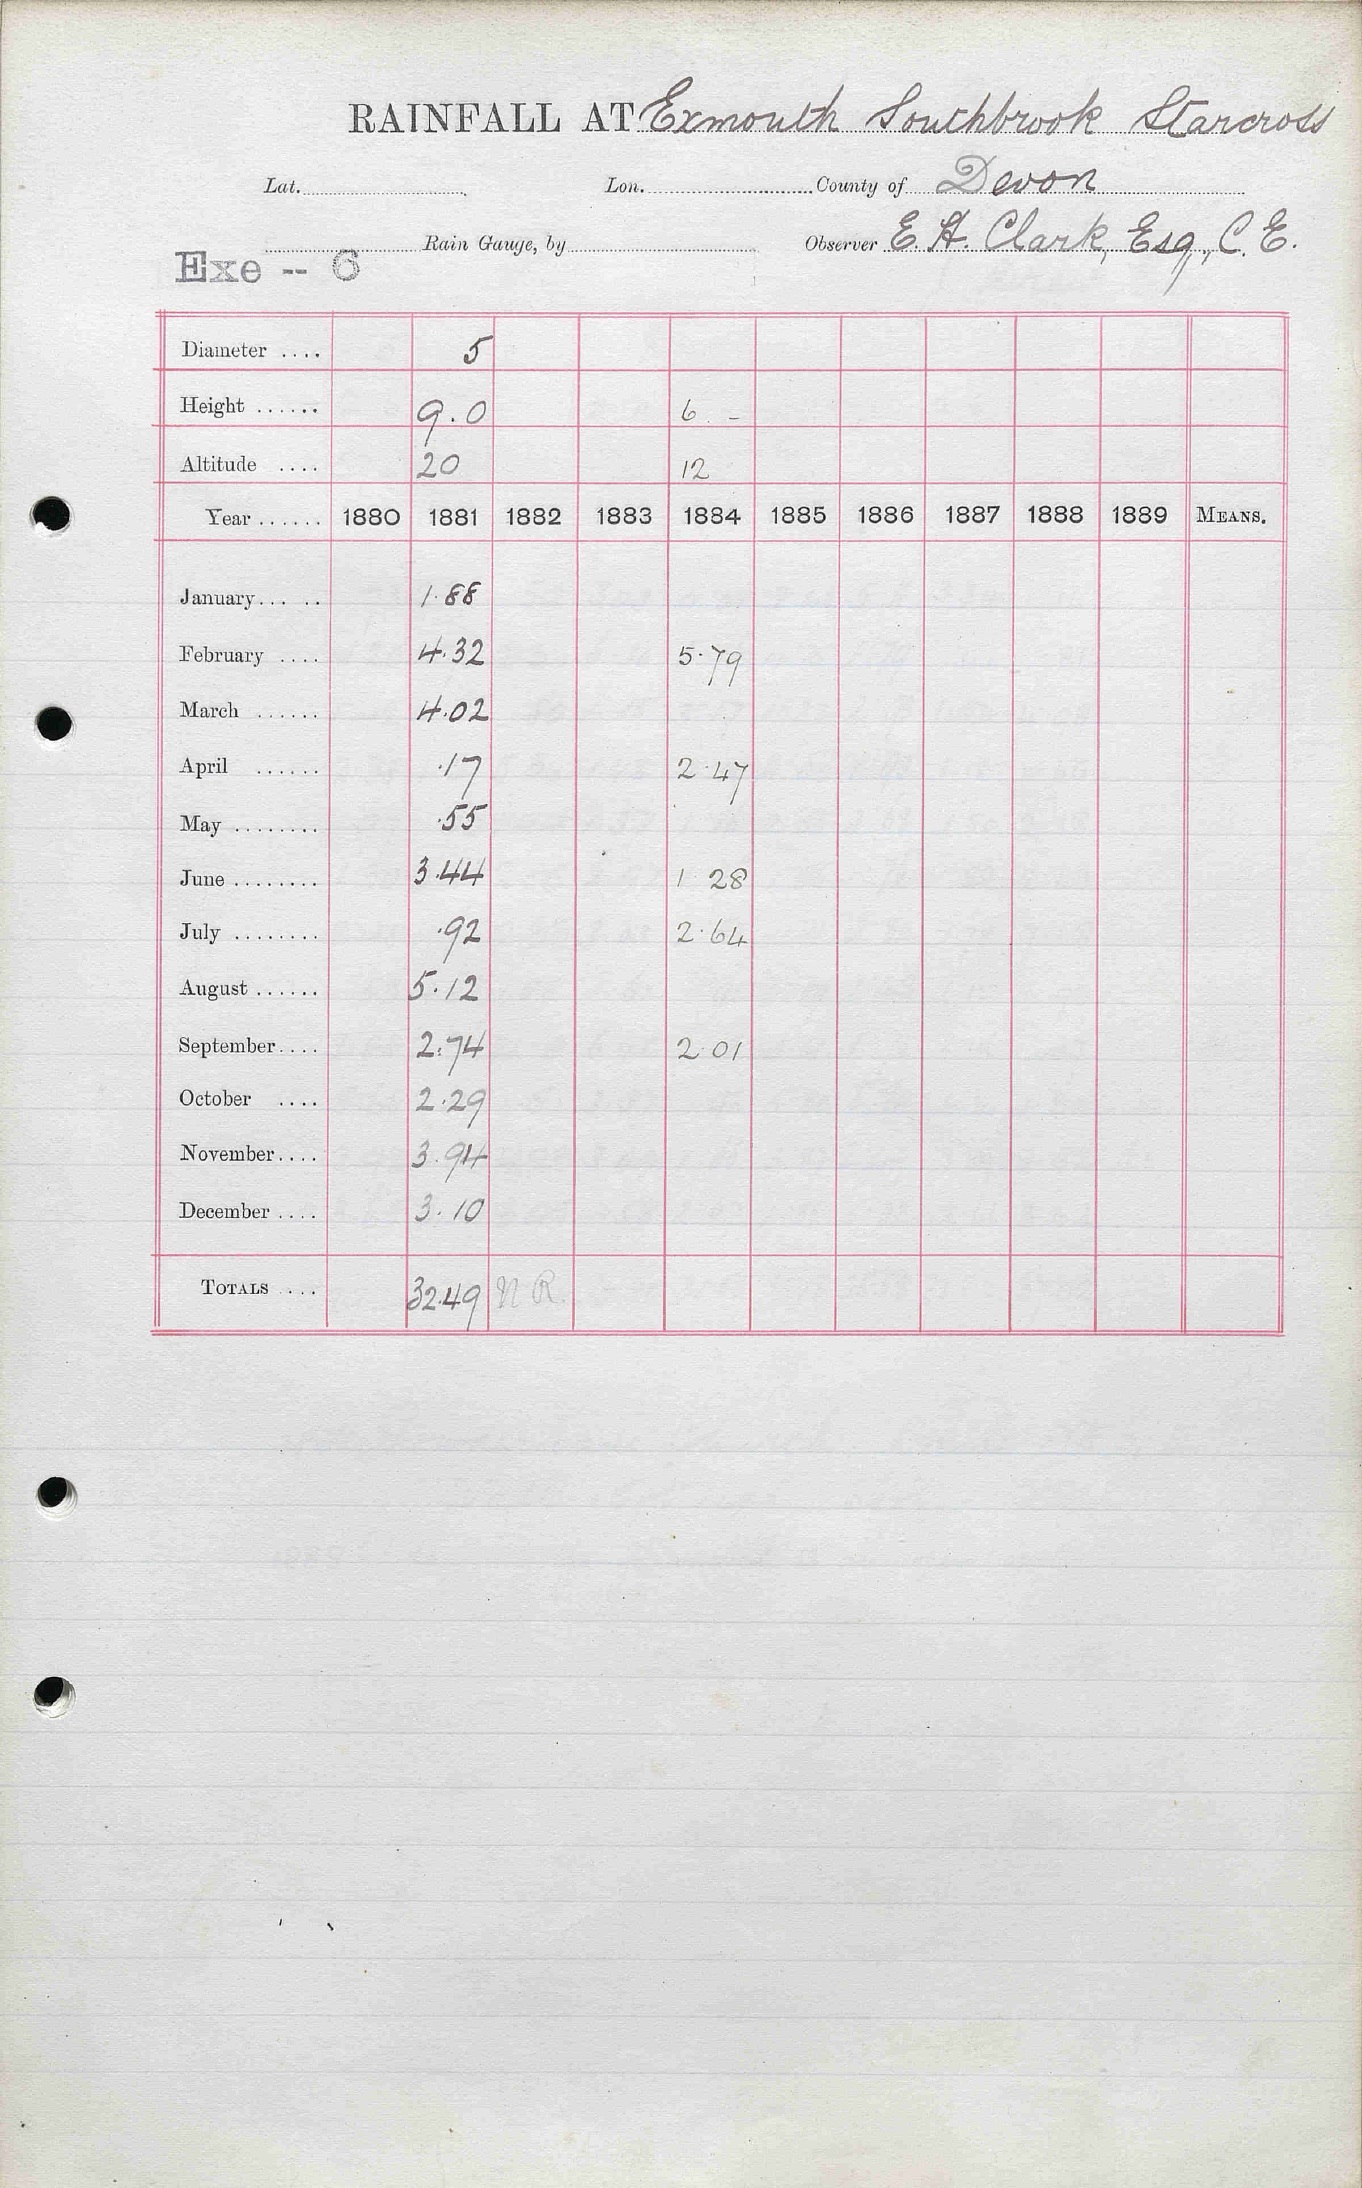 RAINFALL AT Exmouth Southbrook Starcross
Lat. Lon. County of Devon
Rain Gauge, by Observer E. H. Clark, Esq., C. E.
Exe -- 6
Diameter .... 5
Height ...... 9.0 6. -
Altitude .... 20 12
Year ...... 1880 1881 1882 1883 1884 1885 1886 1887 1888 1889 MEANS.
January... .. 1.88
February .... 4.32 5.79
March ...... 4.02
April ...... .17 2.47
May ........ .55
June ........ 3.44 1 28
July ........ .92 2.64
August ...... 5.12
September.... 2.74 2.01
October .... 2.29
November.... 3.94
December .... 3.10
TOTALS .... 32.49 N R.